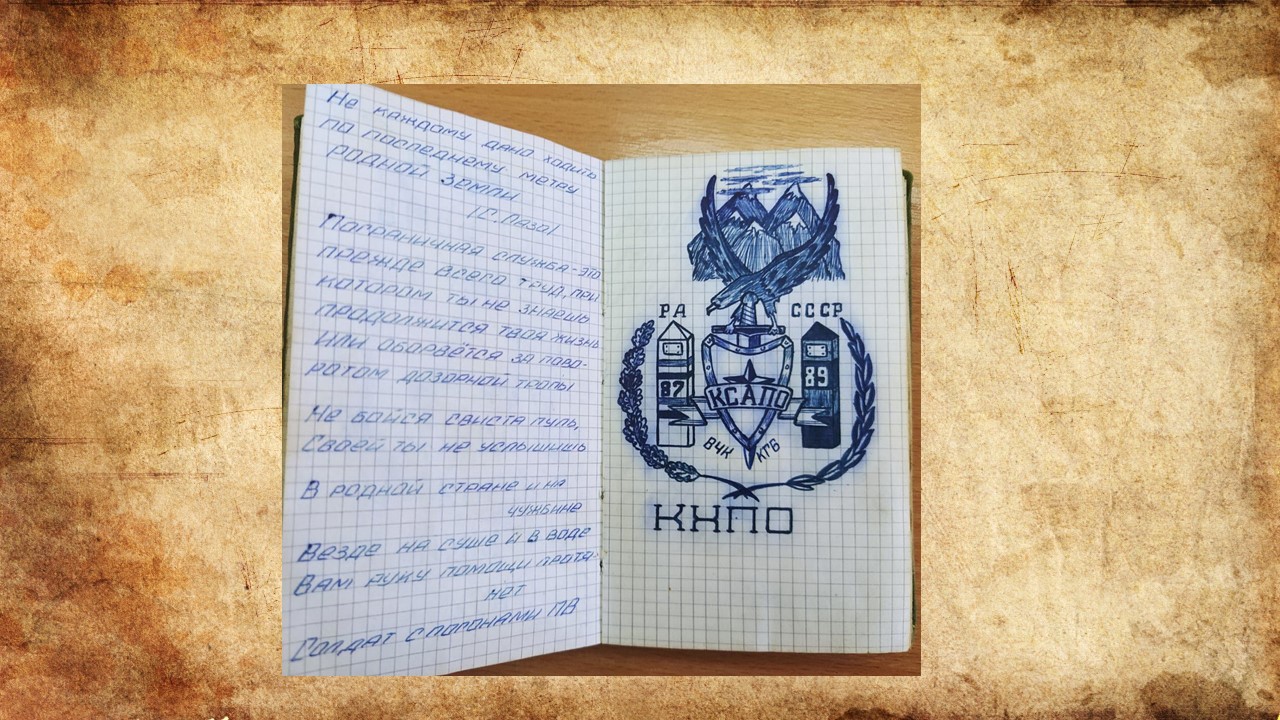 Не каждому дано ходить
по последнему метру
родной земли
/С. Лазо/
Пограничная служба - это
прежде всего труд, при
котором ты не знаешь
продолжится твоя жизнь
или оборвётся за пово-
ротом дозорной тропы
Не бойся свиста пуль,
Своей ты не услышишь
В родной стране и на
чужбине
Везде на суше и в воде
Вам руку помощи протя-
нет
Солдат с погонами ПВ
РА СССР
87 89
КСАПО
ВЧК КГБ
КНПО